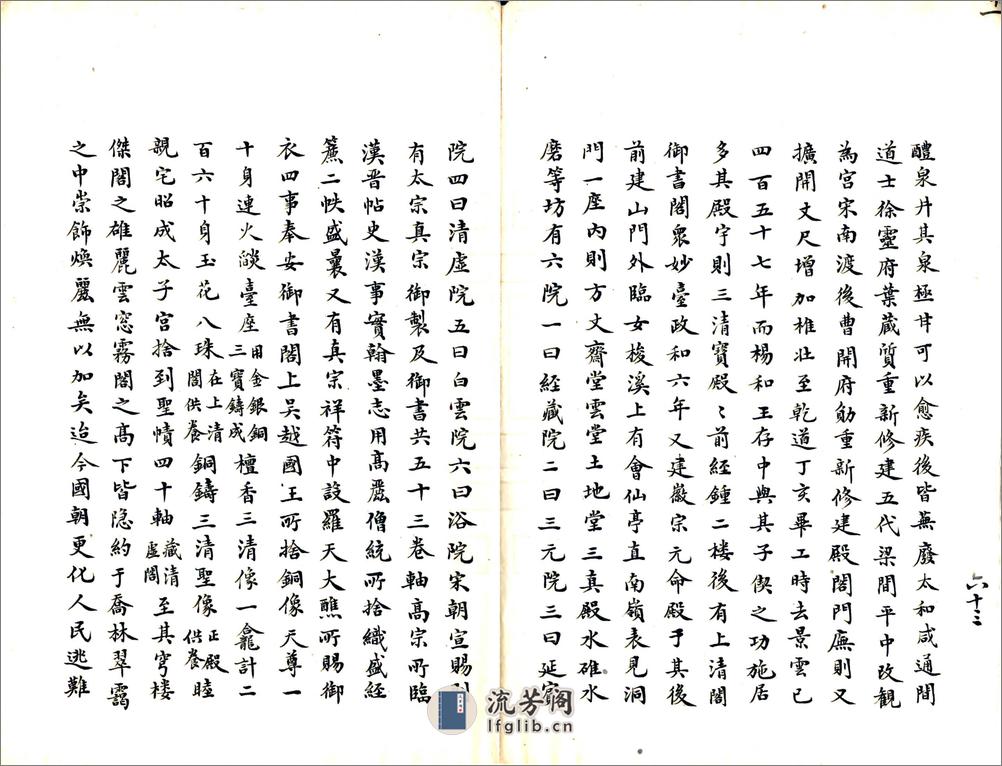 六十三
醴泉井其泉極甘可以愈疾後皆蕪廢太和咸通間
道士徐靈府葉蔵質重新修建五代梁開平中改觀
為宮宋南渡後曹開府勛重新修建殿閣門廡則又
擴開丈尺增加椎壮至乾道丁亥畢工時去景雲已
四百五十七年而楊和王存中與其子偰之功施居
多其殿宇則三清寶殿〻前經鍾二楼後有上清閣
御書閣衆妙臺政和六年又建徽宗元命殿于其後
前建山門外臨女梭溪上有會仙亭直南嶺表見洞
門一座內則方丈齋堂雲堂土地堂三真殿水碓水
磨等坊有六院一曰経藏院二曰三元院三曰延賔
院四曰清虛院五曰白雲院六曰浴院宋朝宣賜則
有太宗真宗御製及御書共五十三卷軸高宗所臨
漢晋帖史漢事實翰墨志用高麗僧統所捨織盛経
簾二帙盛曩又有真宗祥符中設羅天大醮所賜御
衣四事奉安御書閣上吳越國王所捨銅像天尊一
十身連火燄臺座用金銀銅三寶鑄成檀香三清像一龕計二
百六十身玉花八珠在上清閣供養銅鑄三清聖像正殿供養睦
親宅昭成太子宮捨到聖幘四十軸藏清虛閣至其穹楼
傑閣之雄麗雲窓霧閣之高下皆隐約于喬林翠靄
之中崇飾煥麗無以加矣迨今國朝更化人民逃難
流芳閣
lfglib.cn